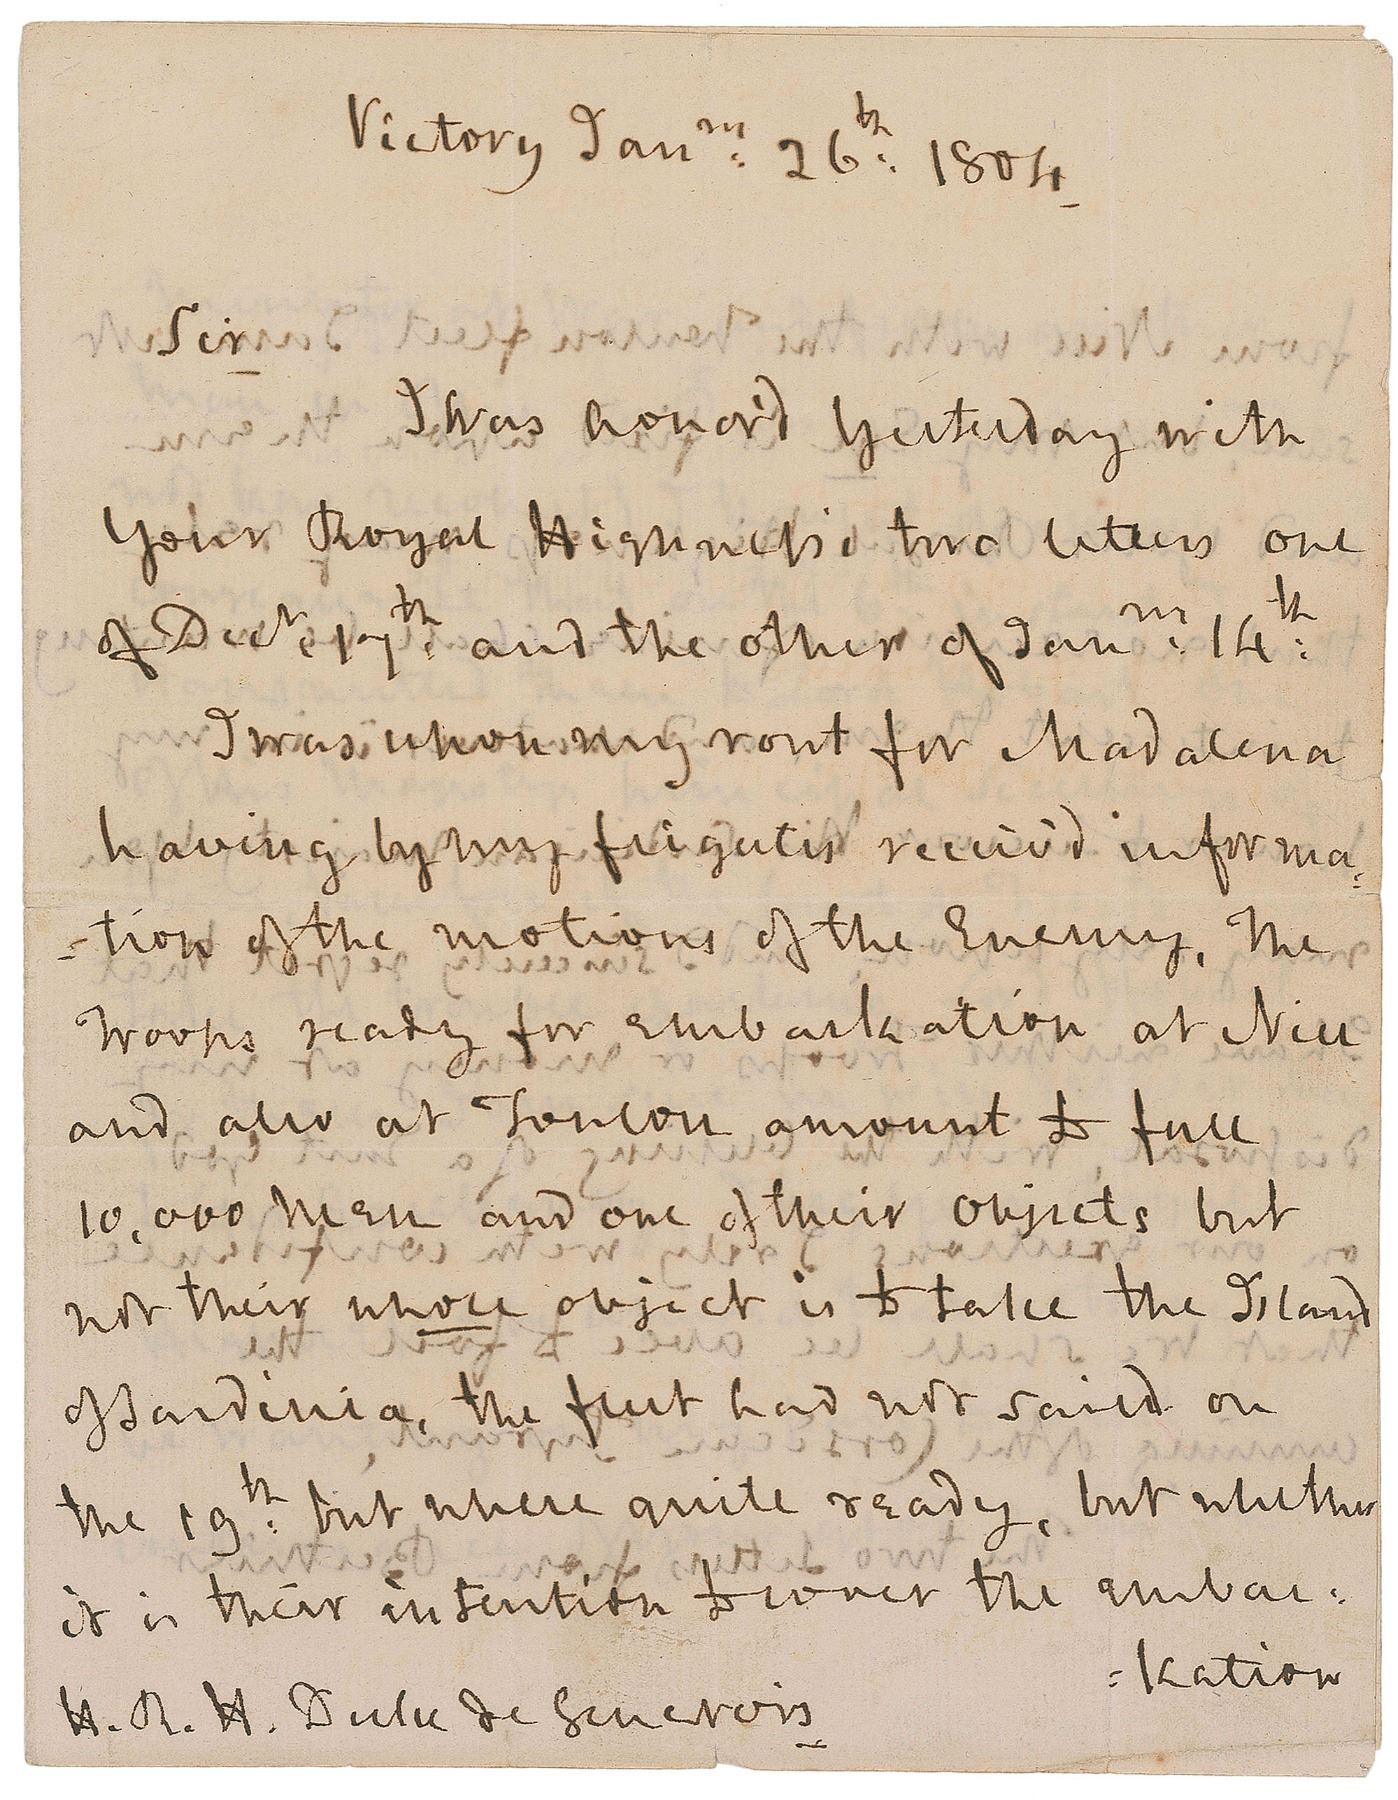 Victory Jan^ry: 26^th: 1804
Sir
I was honor'd Yesterday with
Your Royal Highness's two letters one
of Dec^r: 17^th: and the other of Jan^ry: 14^th:
I was upon my rout for Madalena
having by my frigates receiv'd informa:
-tion of the motions of the Enemy, The
Troops ready for embarkation at Nice
and also at Toulon amount to full
10,000 Men and one of their objects but
not their whole object is to take the Island
of Sardinia, the fleet had not sailed on
the 19^th: but where quite ready, but whether
it is their intention to cover the embar:
:kation
H. R. H. Duke de Genevois